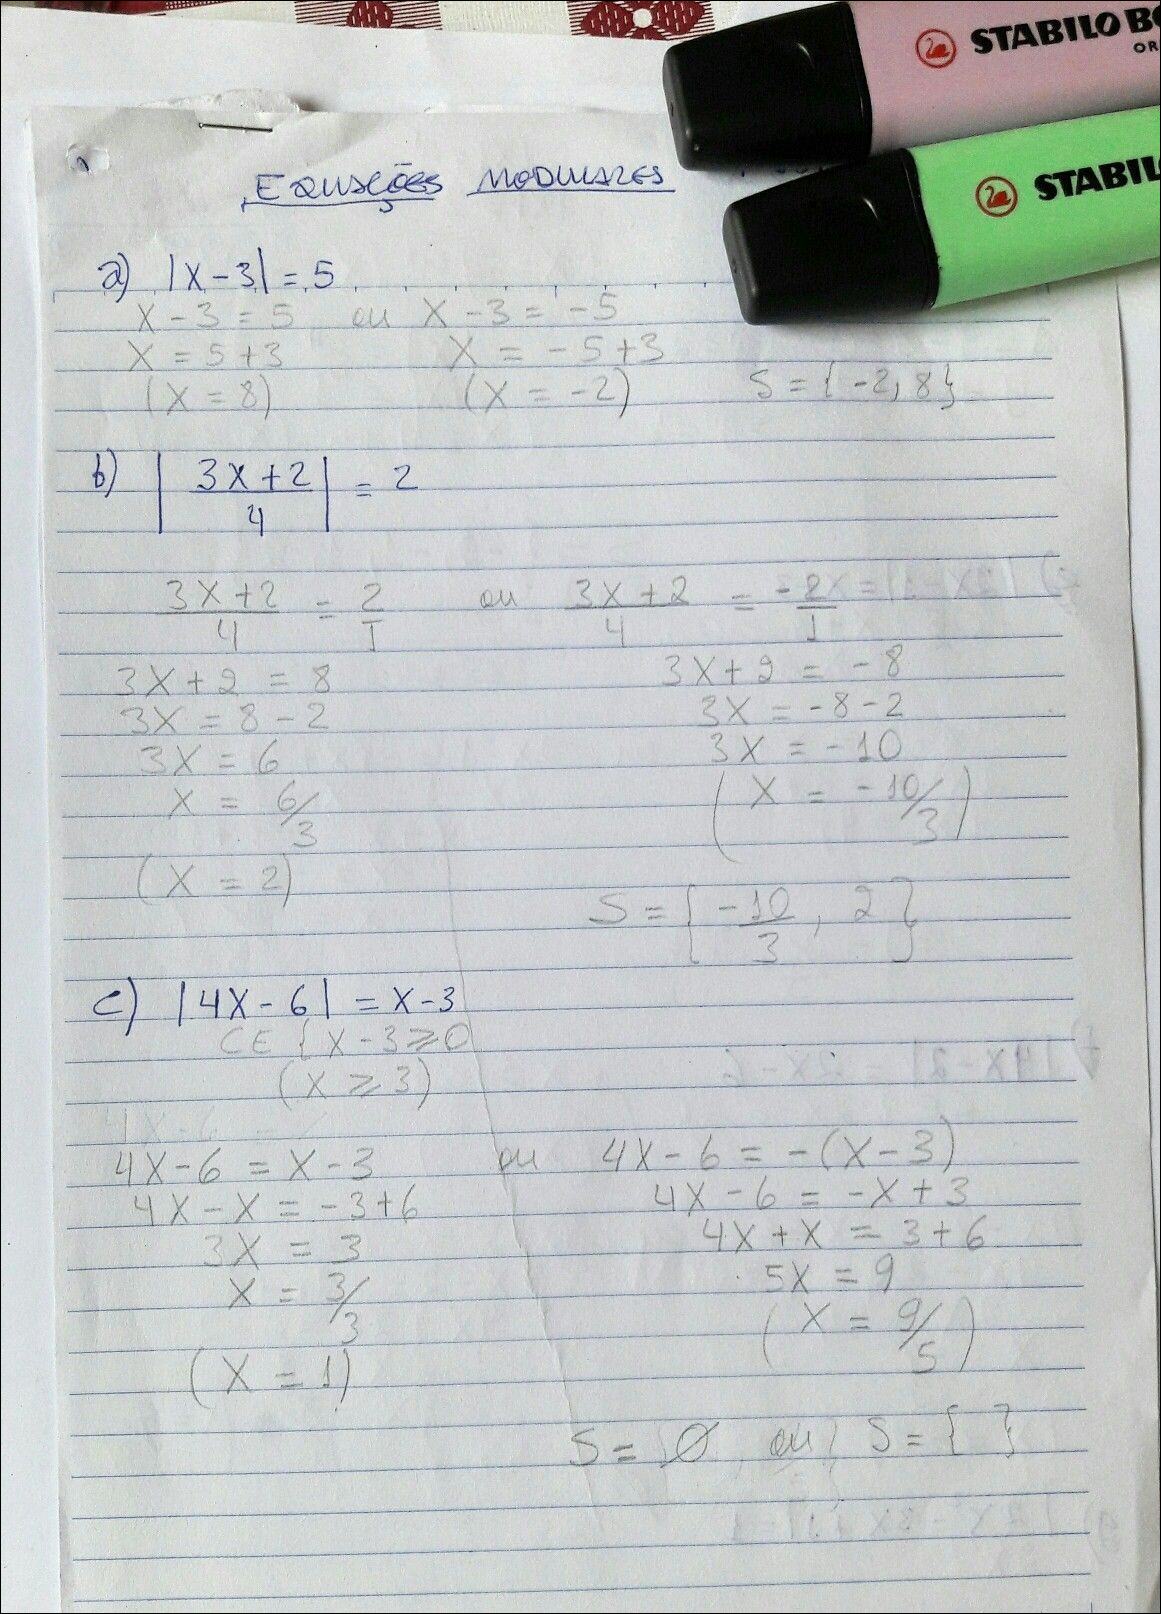 STABILO BO
OR
STABIL
EQUAÇÕES MODULARES
a) |x-3| = 5
x - 3 = 5 ou x - 3 = -5
x = 5+3 x = -5+3
(x = 8) (x = -2) S = {-2, 8}
b) |3x+2/4| = 2
3x+2/4 = 2/1 ou 3x+2/4 = -2/1
3x+2 = 8 3x+2 = -8
3x = 8-2 3x = -8-2
3x = 6 3x = -10
x = 6/3 (x = -10/3)
(x = 2)
S = {-10/3, 2}
c) |4x-6| = x-3
CE {x-3≥0
(x ≥ 3)
4x-6
4x-6 = x-3 ou 4x-6 = -(x-3)
4x-x = -3+6 4x-6 = -x+3
3x = 3 4x+x = 3+6
x = 3/3 5x = 9
(x = 1) (x = 9/5)
S = Ø ou S = { }